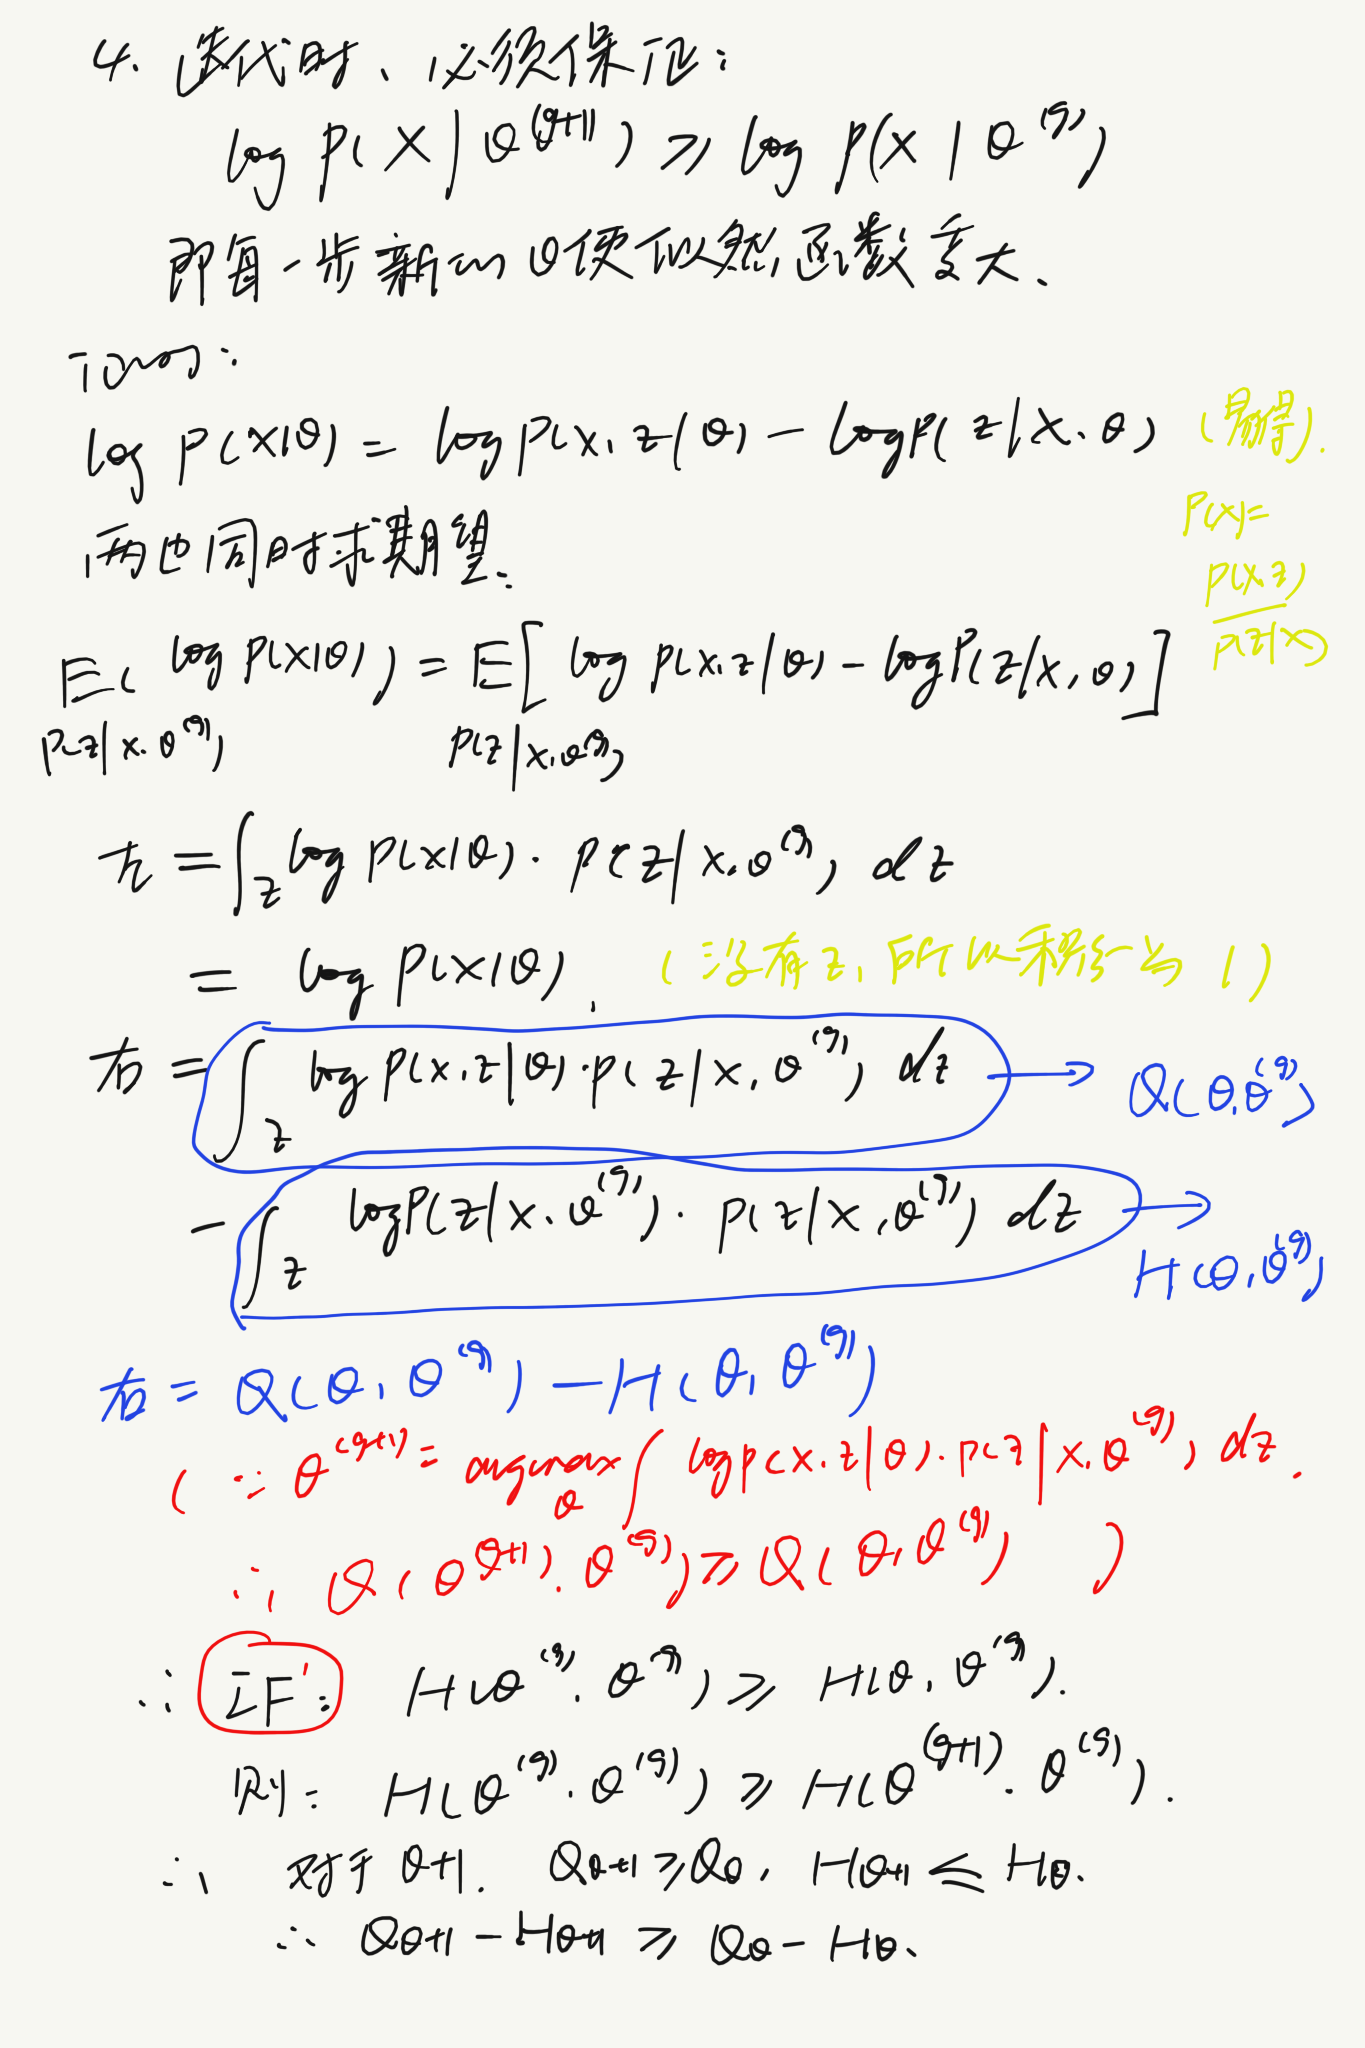 4. 迭代时、必须保证:
log P(X|θ^(g+1)) ≥ log P(X|θ^(g))
即每一步新的θ使似然函数变大.
log P(X|θ) = log P(X,z|θ) - log P(z|X,θ) (易得).
P(X)=
P(X,z)
P(z|X)
两边同时求期望.
E( log P(X|θ) ) = E[ log P(X,z|θ) - log P(z|X,θ) ]
P(z|X,θ^(g)) P(z|X,θ^(g))
左 = ∫_z log P(X|θ) · P(z|X,θ^(g)) dz
= log P(X|θ). (没有z, 所以积分为1)
右 = ∫_z log P(X,z|θ) · P(z|X,θ^(g)) dz → Q(θ,θ^(g))
- ∫_z log P(z|X,θ^(g)) · P(z|X,θ^(g)) dz → H(θ,θ^(g))
右 = Q(θ,θ^(g)) - H(θ,θ^(g))
( ∵ θ^(g+1) = argmax_θ ∫ log P(X,z|θ) · P(z|X,θ^(g)) dz.
∴ Q(θ^(g+1),θ^(g)) ≥ Q(θ,θ^(g)) )
∵ 证: H(θ^(g),θ^(g)) ≥ H(θ,θ^(g)).
则: H(θ^(g),θ^(g)) ≥ H(θ^(g+1),θ^(g)).
∴ 对于θ+1. Qθ+1 ≥ Qθ, Hθ+1 ≤ Hθ.
∴ Qθ+1 - Hθ+1 ≥ Qθ - Hθ.